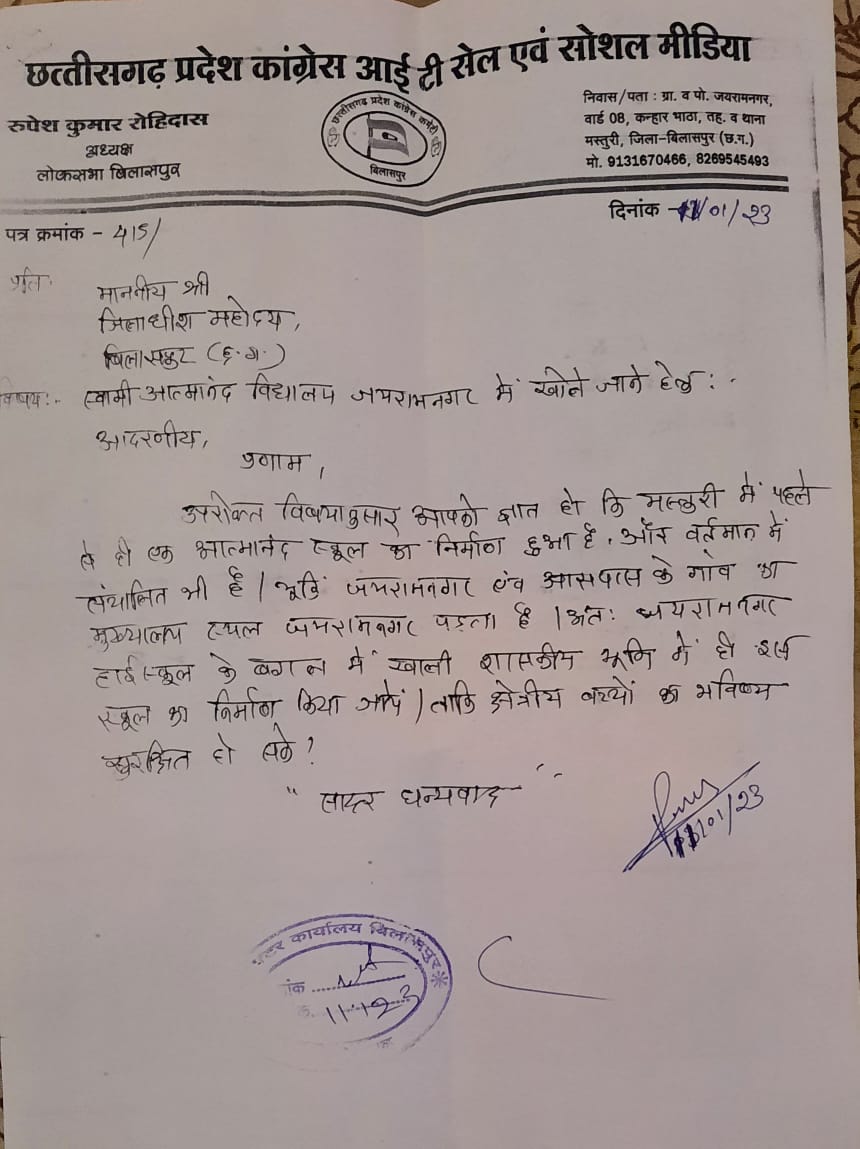 छत्तीसगढ़ प्रदेश कांग्रेस आई टी सेल एवं सोशल मीडिया
रुपेश कुमार रोहिदास
अध्यक्ष
लोकसभा बिलासपुर
छत्तीसगढ़ प्रदेश कांग्रेस कमेटी
बिलासपुर
निवास/पता : ग्रा. व पो. जयरामनगर,
वार्ड 08, कन्हार भाठा, तह. व थाना
मस्तुरी, जिला-बिलासपुर (छ.ग.)
मो. 9131670466, 8269545493
दिनांक - 11/01/23
पत्र क्रमांक - 415/
प्रति
माननीय श्री
जिलाधीश महोदय,
बिलासपुर (छ.ग.)
विषय:- स्वामी आत्मानंद विद्यालय जयरामनगर में खोले जाने हेतु :-
आदरणीय,
प्रणाम,
उपरोक्त विषयानुसार आपको ज्ञात हो कि मस्तुरी में पहले
से ही एक आत्मानंद स्कूल का निर्माण हुआ है, और वर्तमान में
संचालित भी है। चूकिं जयरामनगर एंव आसपास के गांव का
मुख्यालय स्थल जयरामनगर पड़ता है। अतः जयरामनगर
हाईस्कूल के बगल में खाली शासकीय भूमि में ही इस
स्कूल का निर्माण किया जायें। ताकि क्षेत्रीय बच्चों का भविष्य
सुरक्षित हो सके?
" सादर धन्यवाद "
11/01/23
कार्यालय बिलासपुर
11-1-23